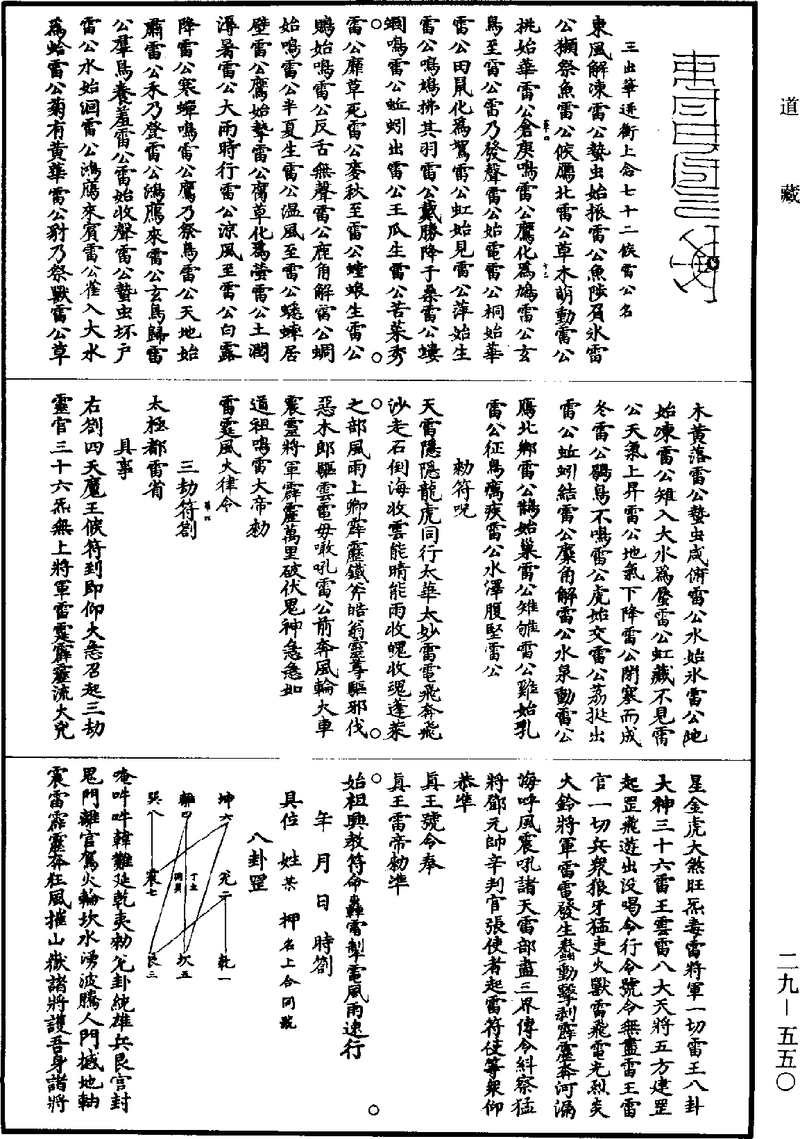 道藏
三出華通衝上念七十二候雷公名
東風解凍雷公蟄虫始振雷公魚陟負氷雷
公獺祭魚雷公候鴈北雷公草木萌動雷公
桃始華雷公倉庚鳴雷公鷹化為鳩雷公玄
鳥至雷公雷乃發聲雷公始電雷公桐始華
雷公田鼠化為鴽雷公虹始見雷公萍始生
雷公鳴鳩拂其羽雷公戴勝降于桑雷公螻
蟈鳴雷公蚯蚓出雷公王瓜生雷公苦菜秀
雷公靡草死雷公麥秋至雷公螳螂生雷公
鵙始鳴雷公反舌無聲雷公鹿角解雷公蜩
始鳴雷公半夏生雷公溫風至雷公蟋蟀居
壁雷公鷹始摯雷公腐草化為螢雷公土潤
溽暑雷公大雨時行雷公涼風至雷公白露
降雷公寒蟬鳴雷公鷹乃祭鳥雷公天地始
肅雷公禾乃登雷公鴻鴈來雷公玄鳥歸雷
公羣鳥養羞雷公雷始收聲雷公蟄虫坏戶
雷公水始涸雷公鴻鴈來賓雷公雀入大水
為蛤雷公菊有黃華雷公豺乃祭獸雷公草
木黃落雷公蟄虫咸俯雷公水始氷雷公地
始凍雷公雉入大水為蜃雷公虹藏不見雷
公天氣上昇雷公地氣下降雷公閉塞而成
冬雷公鶡鳥不鳴雷公虎始交雷公荔挺出
雷公蚯蚓結雷公麋角解雷公水泉動雷公
鴈北鄉雷公鵲始巢雷公雉雊雷公雞始乳
雷公征鳥厲疾雷公水澤腹堅雷公
勅符呪
天雷隱隱龍虎同行太華太妙雷電飛奔飛
沙走石倒海收雲能晴能雨收魄收魂蓬萊
之部風雨上卿霹靂鐵斧皓翁靈尊驅邪伐
惡水郎驅雲電母噉吼雷公前奔風輪火車
震靈將軍霹靂萬里破伏鬼神急急如
道祖鳴雷大帝勅
雷霆風火律令
三劫符劄
太極都雷省
具事
右劄四天魔王候符到即仰火急召起三劫
靈官三十六炁無上將軍雷霆霹靂流火
星金虎大煞旺炁毒雷將軍一切雷王八卦
大神三十六雷王雲雷八大天將五方建罡
起罡飛遊出没喝令行令號令無盡雷王雷
官一切兵衆狼牙猛吏火獸雷飛電光烈炎
火鈴將軍雷雷發生蠢動擊剥霹靂奔河漏
海呼風震吼諸天雷部盡三界傳令糾察猛
將鄧元帥辛判官張使者起雷符使等衆仰
恭準
真王號令奉
真王雷帝勅準
始祖興教符命轟雷掣電風雨速行
年月日時劄
具位姓某押名上合同號
八卦罡
坤六 兌二 乾一
離四 坎五
巽八 震七 艮三
唵吽吽韓難延乾夷勅兌卦統雄兵艮宮封
鬼門離宮駕火輪坎水湧波騰人門撼地軸
震雷霹靂奔狂風摧山嶽諸將護吾身諸將
二九—五五〇